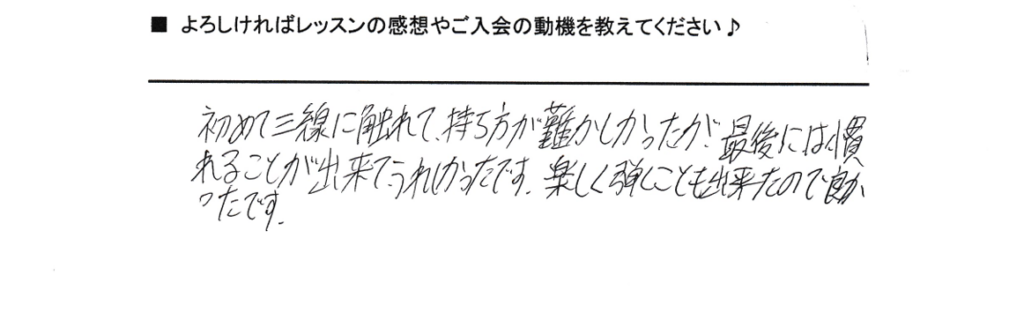 ■ よろしければレッスンの感想やご入会の動機を教えてください♪
初めて三線に触れて、持ち方が難かしかったが、最後には慣
れることが出来て、うれしかったです。楽しく弾くことも出来たので良か
ったです。